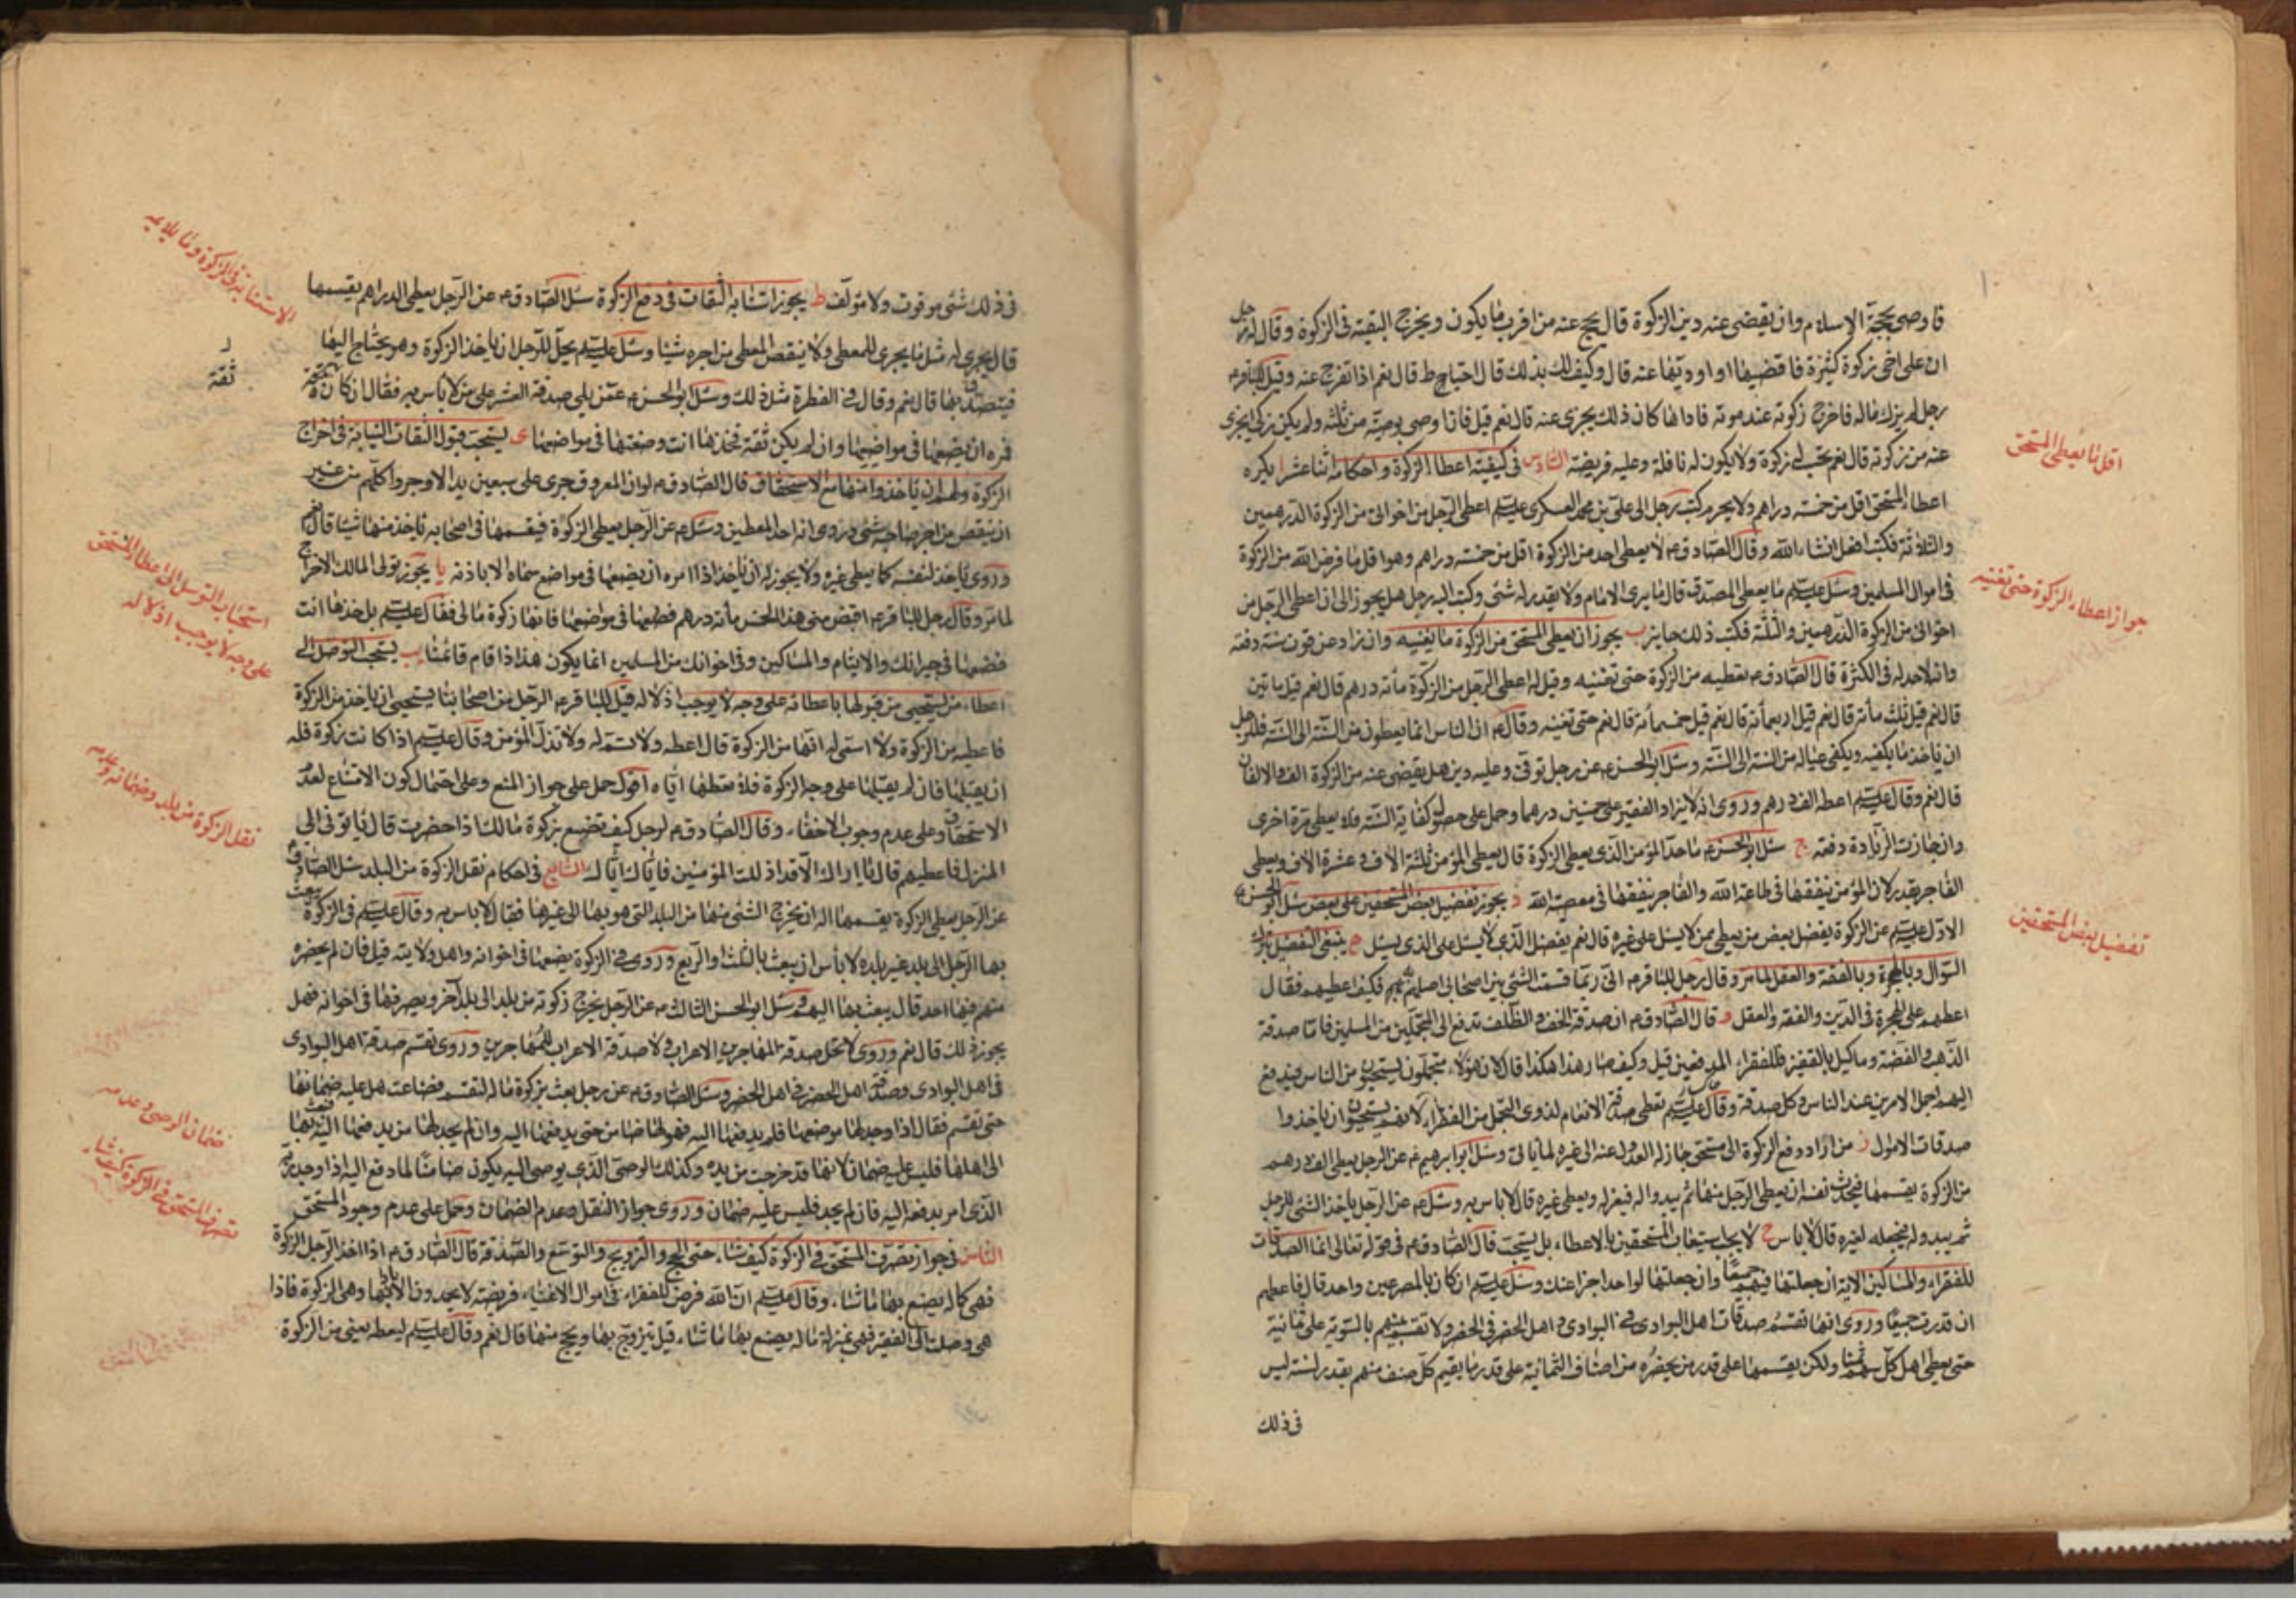 فاوصى بحجة الاسلام وان يقضى عنه دين الزكوة قال يحج عنه من اقرب ما يكون ويخرج البقية فى الزكوة وقال له رجل
ان على اخى زكوة كثيرة فاقضيها او اوديها عنه قال وكيف لك بذلك قال احتاط قال نعم اذا تفرج عنه وقيل للباقر ع
رجل لم يزك ماله فاخرج زكوته عند موته فاداها كان ذلك يجزى عنه قال نعم قيل فان اوصى بوصية من ثلثه ولم يكن زكى ايجزى
عنه من زكوته قال نعم يحسب له زكوة ولا يكون له نافلة وعليه فريضة السادس فى كيفية اعطاء الزكوة واحكامه اثنا عشر ا يكره
اعطاء المستحق اقل من خمسة دراهم ولا يحرم كتب رجل الى على بن محمد العسكرى عليتهم اعطى الرجل من اخوانى من الزكوة الدرهمين
والثلاثة فكتب افعل انشاء الله وقال الصادق ع لا يعطى احد من الزكوة اقل من خمسة دراهم وهو اقل ما فرض الله من الزكوة
فى اموال المسلمين وسئل عليتهم ما يعطى المصدق قال ما يرى الامام ولا يقدر له شئ وكتب اليه رجل هل يجوز لى ان اعطى الرجل من
اخوانى من الزكوة الدرهمين والثلثة فكتب ذلك جايز ب يجوز ان يعطى المستحق من الزكوة ما يغنيه وان زاد عن قوت سنة دفعة
وانه لا حد له فى الكثرة قال الصادق ع تعطيه من الزكوة حتى تغنيه وقيل له اعطى الرجل من الزكوة مأته درهم قال نعم قيل مأتين
قال نعم قيل ثلث مأته قال نعم قيل اربعمأته قال نعم قيل خمسمأته قال نعم حتى تغنيه وقال ع ان الناس انما يعطون من السنة الى السنة فللرجل
ان ياخذ ما يكفيه ويكفى عياله من السنة الى السنة وسئل ابو الحسن ع عن رجل توفى وعليه دين هل يقضى عنه من الزكوة الالف والالفان
قال نعم وقال عليتهم اعطه الف درهم وروى انه لا يزاد الفقير على خمسين درهما وحمل على حصول كفاية السنة فلا يعطى مرة اخرى
وان جازت الزيادة دفعة ج سئل ابو الحسن ع ما حد المؤمن الذى يعطى الزكوة قال يعطى المؤمن ثلثة الاف وعشرة الاف ويعطى
الفاجر بقدر لان المؤمن ينفقها فى طاعة الله والفاجر ينفقها فى معصية الله د يجوز تفضيل بعض المستحقين على بعض سئل ابو الحسن ع
الاول عليتهم عن الزكوة يفضل بعض من يعطى ممن لا يسئل على غيره قال نعم يفضل الذى لا يسئل على الذى يسئل ه ينبغى التفضيل بترك
السؤال وبالهجرة وبالفقه والعقل لما مر وقال رجل للباقر ع انى ربما قسمت الشئ بين اصحابى اصلهم به فكيف اعطيهم فقال
اعطهم على الهجرة فى الدين والفقه والعقل و قال الصادق ع ان صدقة الخف والظلف تدفع الى المتجملين من المسلمين فاما صدقة
الذهب والفضة وما كيل بالقفيز فللفقراء المدقعين قيل وكيف صار هذا هكذا قال لان هؤلاء متجملون يستحيون من الناس فيدفع
اليهم اجمل الامرين عند الناس وكل صدقة وقال عليتهم تعطى صدقة الانعام لذوى التجمل من الفقراء لانهم يستحيون ان ياخذوا
صدقات الاموال ز من اراد دفع الزكوة الى مستحق جاز له العدول عنه الى غيره لما ياتى وسئل ابو ابرهيم ع عن الرجل يعطى الف درهم
من الزكوة يقسمها فيحدث نفسه ان يعطى الرجل منها ثم يبدو له فيعزله ويعطى غيره قال لا باس به وسئل ع عن الرجل ياخذ الشئ للرجل
ثم يبدو له فيجعله لغيره قال لا باس ح لا يجب استيعاب المستحقين بالاعطاء بل يستحب قال الصادق ع فى قوله تعالى انما الصدقات
للفقراء والمساكين الاية ان جعلتها فيهم جميعا وان جعلتها لواحد اجزا عنك وسئل عليتهم ان كان بالمصر غير واحد قال فاعطهم
ان قدرت جميعا وروى انها تقسم صدقات اهل البوادى فى البوادى واهل الحضر فى الحضر ولا تقسم بينهم بالسوية على ثمانية
حتى يعطى اهل كل سهم ثمنا ولكن يقسمها على قدر من يحضره من اصناف الثمانية على قدر ما يقيم كل صنف منهم بقدر لسنته ليس
فى ذلك
اقل ما يعطى المستحق
جواز اعطاء الزكوة حتى تغنيه
تفضيل بعض المستحقين
فى ذلك شئ موقوت ولا مؤلف ط يجوز استنابة الثقات فى دفع الزكوة سئل الصادق ع عن الرجل يعطى الدراهم يقسمها
قال يجرى له مثل ما يجرى للمعطى ولا ينقص المعطى من اجره شيئا وسئل عليتهم يحل للرجل ان ياخذ الزكوة وهو يحتاج اليها
فيتصدق بها قال نعم وقال فى الفطرة مثل ذلك وسئل ابو الحسن ع عمن يلى صدقة العشر على من لا باس به فقال ان كان ثقة
فمره ان يضعها فى مواضعها وان لم يكن ثقة فخذها انت وضعها فى مواضعها ى يستحب قبول الثقات النيابة فى اخراج
الزكوة ولهم ان ياخذوا منها مع الاستحقاق قال الصادق ع لو ان المعروف جرى على سبعين يدا لاوجروا كلهم من غير
ان ينقص من اجر صاحبه شئ وروى انه احد المعطين وسئل ع عن الرجل يعطى الزكوة فيقسمها فى اصحابه ياخذ منها شيئا قال نعم
وروى ياخذ لنفسه كما يعطى غيره ولا يجوز له ان ياخذ اذا امره ان يضعها فى مواضع سماه الا باذنه يا يجوز تولى المالك الاخراج
لما مر وقال رجل للباقر ع اقبض منى هذه الخمس مأته درهم فضعها فى مواضعها فانها زكوة مالى فقال عليتهم بل خذها انت
فضعها فى جيرانك والايتام والمساكين وفى اخوانك من المسلمين انما يكون هذا اذا قام قائمنا يب يستحب التوصل الى
اعطاء من يستحيى من قبولها باعطائه على وجه لا يوجب اذلاله قيل للباقر ع الرجل من اصحابنا يستحيى ان ياخذ من الزكوة
فاعطيه من الزكوة ولا اسمى له انها من الزكوة قال اعطه ولا تسم له ولا تذل المؤمن وقال عليتهم اذا كانت زكوة فله
ان يقبلها فان لم يقبلها على وجه الزكوة فلا تعطها اياه اقول حمل على جواز المنع وعلى احتمال كون الامتناع لعدم
الاستحقاق وعلى عدم وجوب الاخفاء وقال الصادق ع لرجل كيف تصنع بزكوة مالك اذا حضرت قال ياتونى الى
المنزل فاعطيهم قال ما اراك الا قد اذللت المؤمنين فاياك اياك السابع فى احكام نقل الزكوة من البلد سئل الصادق ع
عن الرجل يعطى الزكوة يقسمها اله ان يخرج الشئ منها من البلد التى هو بها الى غيرها فقال لا باس به وقال عليتهم فى الزكوة يبعث
بها الرجل الى بلد غير بلده لا بأس ان يبعث بالثلث والربع وروى فى الزكوة يضعها فى اخوانه واهل ولايته قيل فان لم يحضره
منهم فيها احد قال يبعث بها اليهم وسئل ابو الحسن الثالث ع عن الرجل يخرج زكوته من بلد الى بلد آخر ويصرفها فى اخوانه فهل
يجوز ذلك قال نعم وروى لا تحل صدقة المهاجرين للاعراب ولا صدقة الاعراب للمهاجرين وروى تقسم صدقة اهل البوادى
فى اهل البوادى وصدقة اهل الحضر فى اهل الحضر وسئل الصادق ع عن رجل بعث بزكوة ماله لتقسم فضاعت هل عليه ضمانها
حتى تقسم فقال اذا وجد لها موضعا فلم يدفعها اليه فهو لها ضامن حتى يدفعها اليه وان لم يجد لها من يدفعها اليه فبعث بها
الى اهلها فليس عليه ضمان لانها قد خرجت من يده وكذلك الوصى الذى يوصى اليه يكون ضامنا لما دفع اليه اذا وجد ربه
الذى امر بدفعه اليه فان لم يجد فليس عليه ضمان وروى جواز النقل وعدم الضمان وحمل على عدم وجود المستحق
الثامن فى جواز تصرف المستحق فى الزكوة كيف شاء حتى الحج والتزويج والتوسع والصدقة قال الصادق ع اذا اخذ الرجل الزكوة
فهى كماله يصنع بها ما شاء وقال عليتهم ان الله فرض للفقراء فى اموال الاغنياء فريضة لا يحمدون الا بادائها وهى الزكوة فاذا
هى وصلت الى الفقير فهى بمنزلة ماله يصنع بها ما شاء قيل يتزوج بها ويحج منها قال نعم وقال عليتهم ليعطه يعنى من الزكوة
الاستنابة فى الزكوة وما يلايمه
ثقة
استحباب التوسل الى اعطاء المستحق
على وجه لا يوجب اذلاله
نقل الزكوة من بلد وضمانه وعدمه
ضمان الوصى وعدمه
تصرف المستحق فى الزكوة كيف شاء